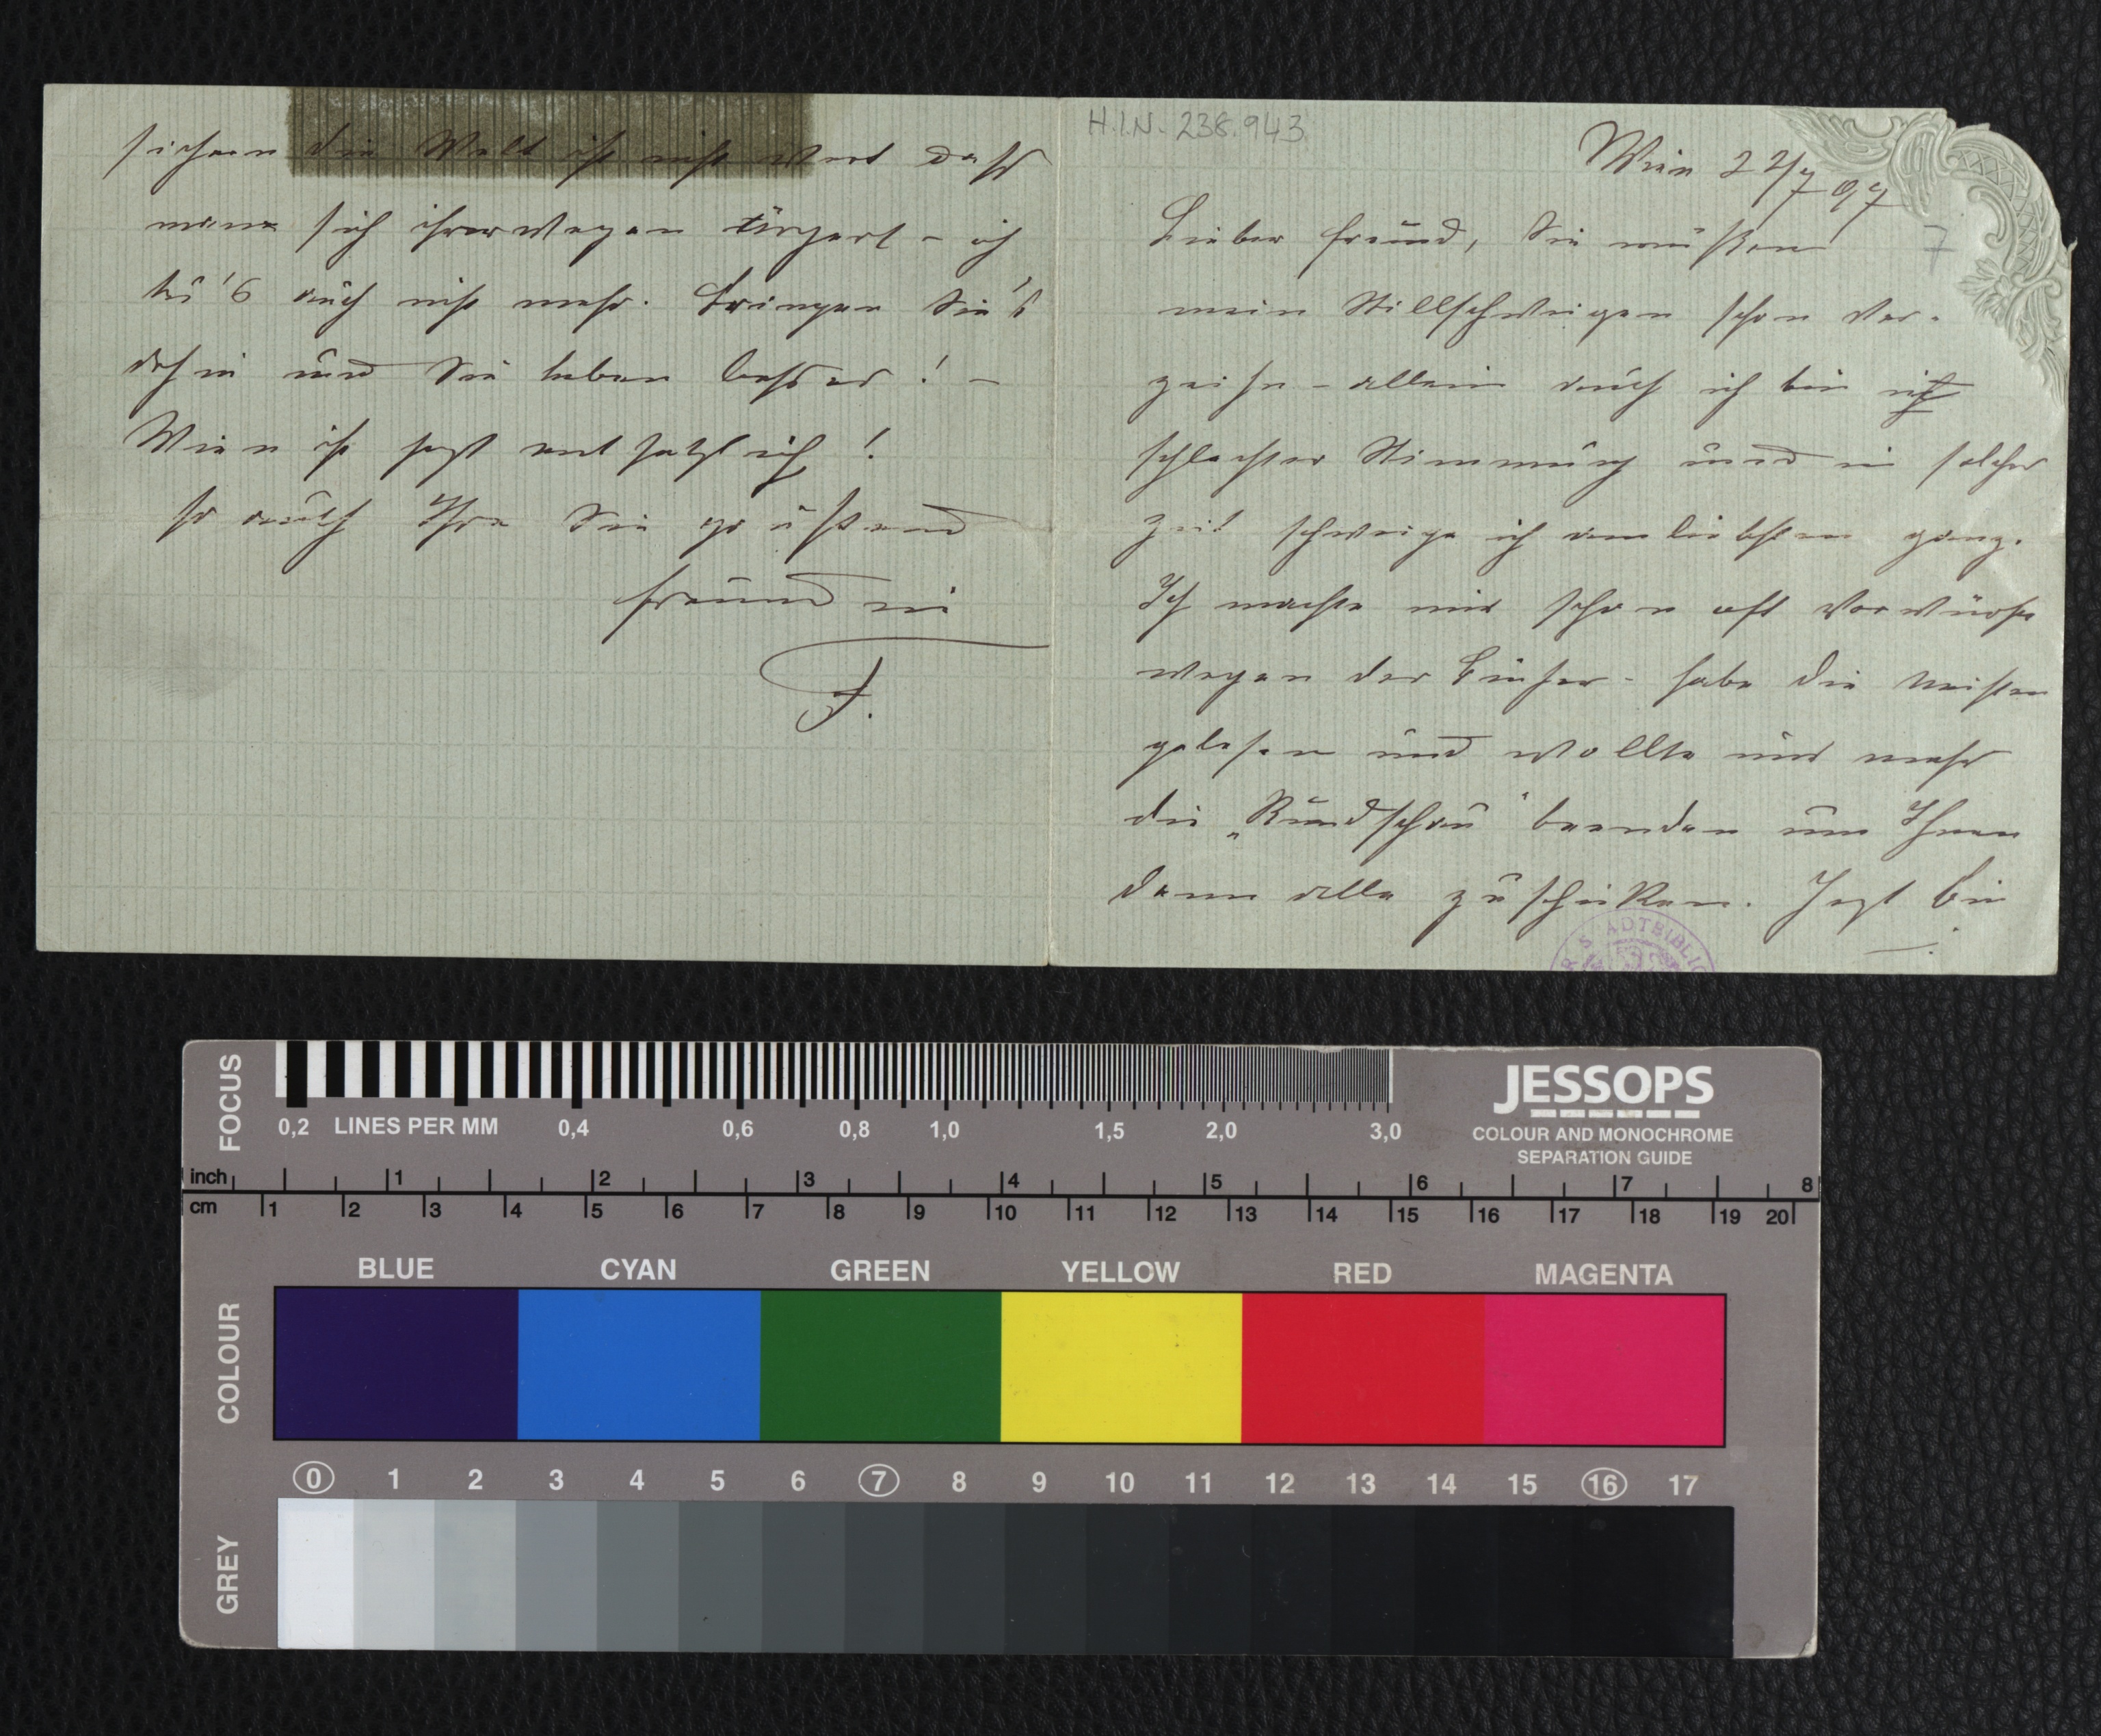 H.I.N. 238.943
Wien 22/7 97
7
Lieber Freund, Sie müßen
mein Stillschweigen schon ver-
zeihn – allein auch ich bin
schlechter Stimmung und in solcher
Zeit schweige ich am liebsten ganz.
Ich machte mir schon oft Vorwürfe
wegen der Bücher – habe die meisten
gelesen und wollte nur mehr
die „Rundschau" beenden um Ihnen
dann alle zu schicken. Jezt bin
sichern die Welt ist nicht wert dass
man sich ihrerwegen ärgert – ich
tu's auch nicht mehr. Bringen Sie's
dahin und Sie leben besser! –
Wien ist jezt entsetzlich!
so auch Ihre Sie grüßend
Freundin
F.
STADTBIBLIO
FOCUS
0,2 LINES PER MM 0,4 0,6 0,8 1,0 1,5 2,0 3,0
JESSOPS
COLOUR AND MONOCHROME
SEPARATION GUIDE
inch 1 2 3 4 5 6 7 8
cm 1 2 3 4 5 6 7 8 9 10 11 12 13 14 15 16 17 18 19 20
COLOUR
BLUE CYAN GREEN YELLOW RED MAGENTA
0 1 2 3 4 5 6 7 8 9 10 11 12 13 14 15 16 17
GREY